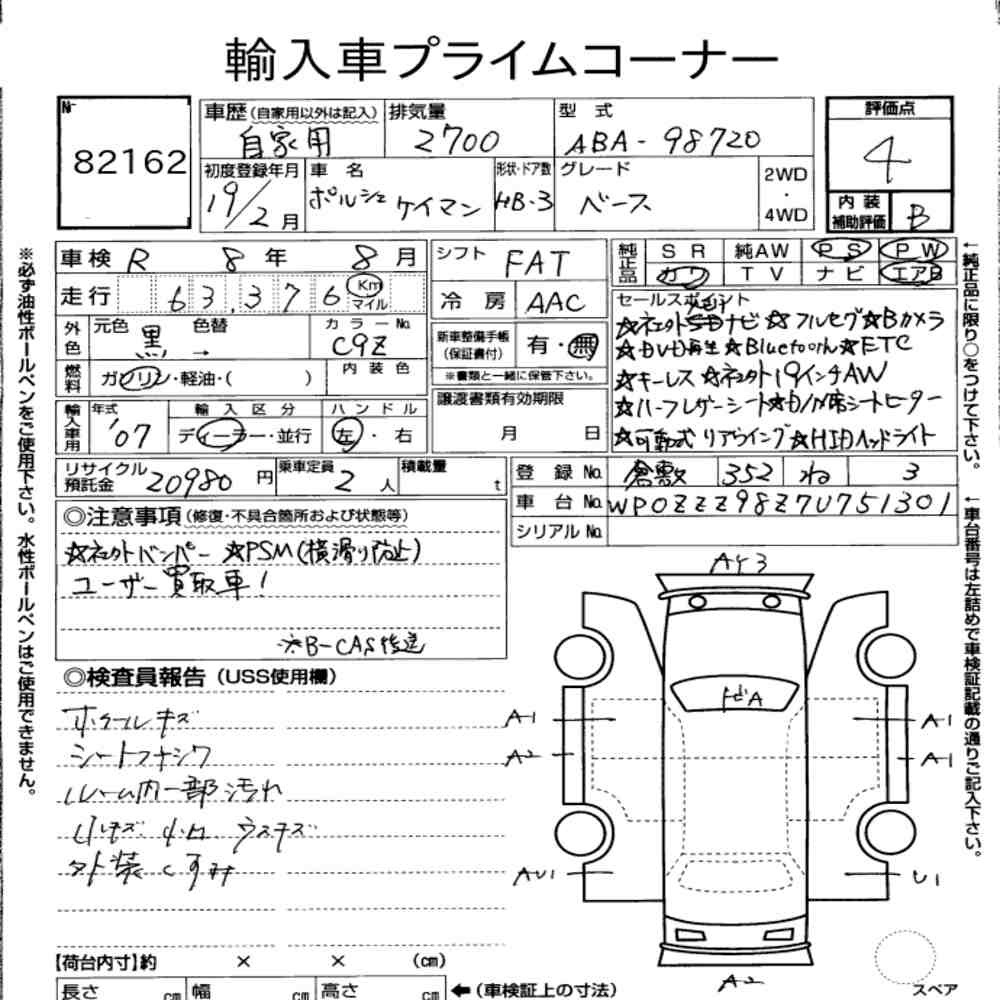 輸入車プライムコーナー
№ 82162
車歴(自家用以外は記入) 自家用
排気量 2700
型式 ABA-98720
評価点 4
初度登録年月 19/2月
車名 ポルシェ ケイマン
形状・ドア数 HB-3
グレード ベース
2WD・4WD
内装補助評価 B
車検 R 8年 8月
走行 63,376 Km マイル
シフト FAT
冷房 AAC
純正品 SR 純AW PS PW
カワ TV ナビ エアB
外色 元色 黒 → 色替
カラーNo. C9Z
燃料 ガソリン・軽油・( )
内装色
新車整備手帳(保証書付) 有・無
※書類と一緒に保管下さい。
譲渡書類有効期限 月 日
セールスポイント
☆社外SDナビ☆フルセグ☆Bカメラ
☆DVD再生☆Bluetooth☆ETC
☆キーレス☆社外19インチAW
☆ハーフレザーシート☆D/N席シートヒーター
☆可動式リアウイング☆HIDヘッドライト
輸入車用 年式 '07
輸入区分 ディーラー・並行
ハンドル 左・右
リサイクル預託金 20980円
乗車定員 2人
積載量 t
登録No. 倉敷 352 ね 3
車台No. WP0ZZZ98Z7U751301
シリアルNo.
◎注意事項(修復・不具合箇所および状態等)
☆社外バンパー ☆PSM(横滑り防止)
ユーザー買取車!
※B-CAS後送
◎検査員報告(USS使用欄)
ホイールキズ
シートスレシワ
ルーム内一部汚れ
小キズ 小凹 ウスキズ
外装くすみ
AY3
トビA
A1
A2
AU1
A1
A1
U1
A2
スペア
【荷台内寸】約 × × (cm)
長さ cm 幅 cm 高さ cm ←(車検証上の寸法)
※必ず油性ボールペンをご使用下さい。水性ボールペンはご使用できません。
←純正品に限り○をつけて下さい。
←車台番号は左詰めで車検証記載の通りご記入下さい。